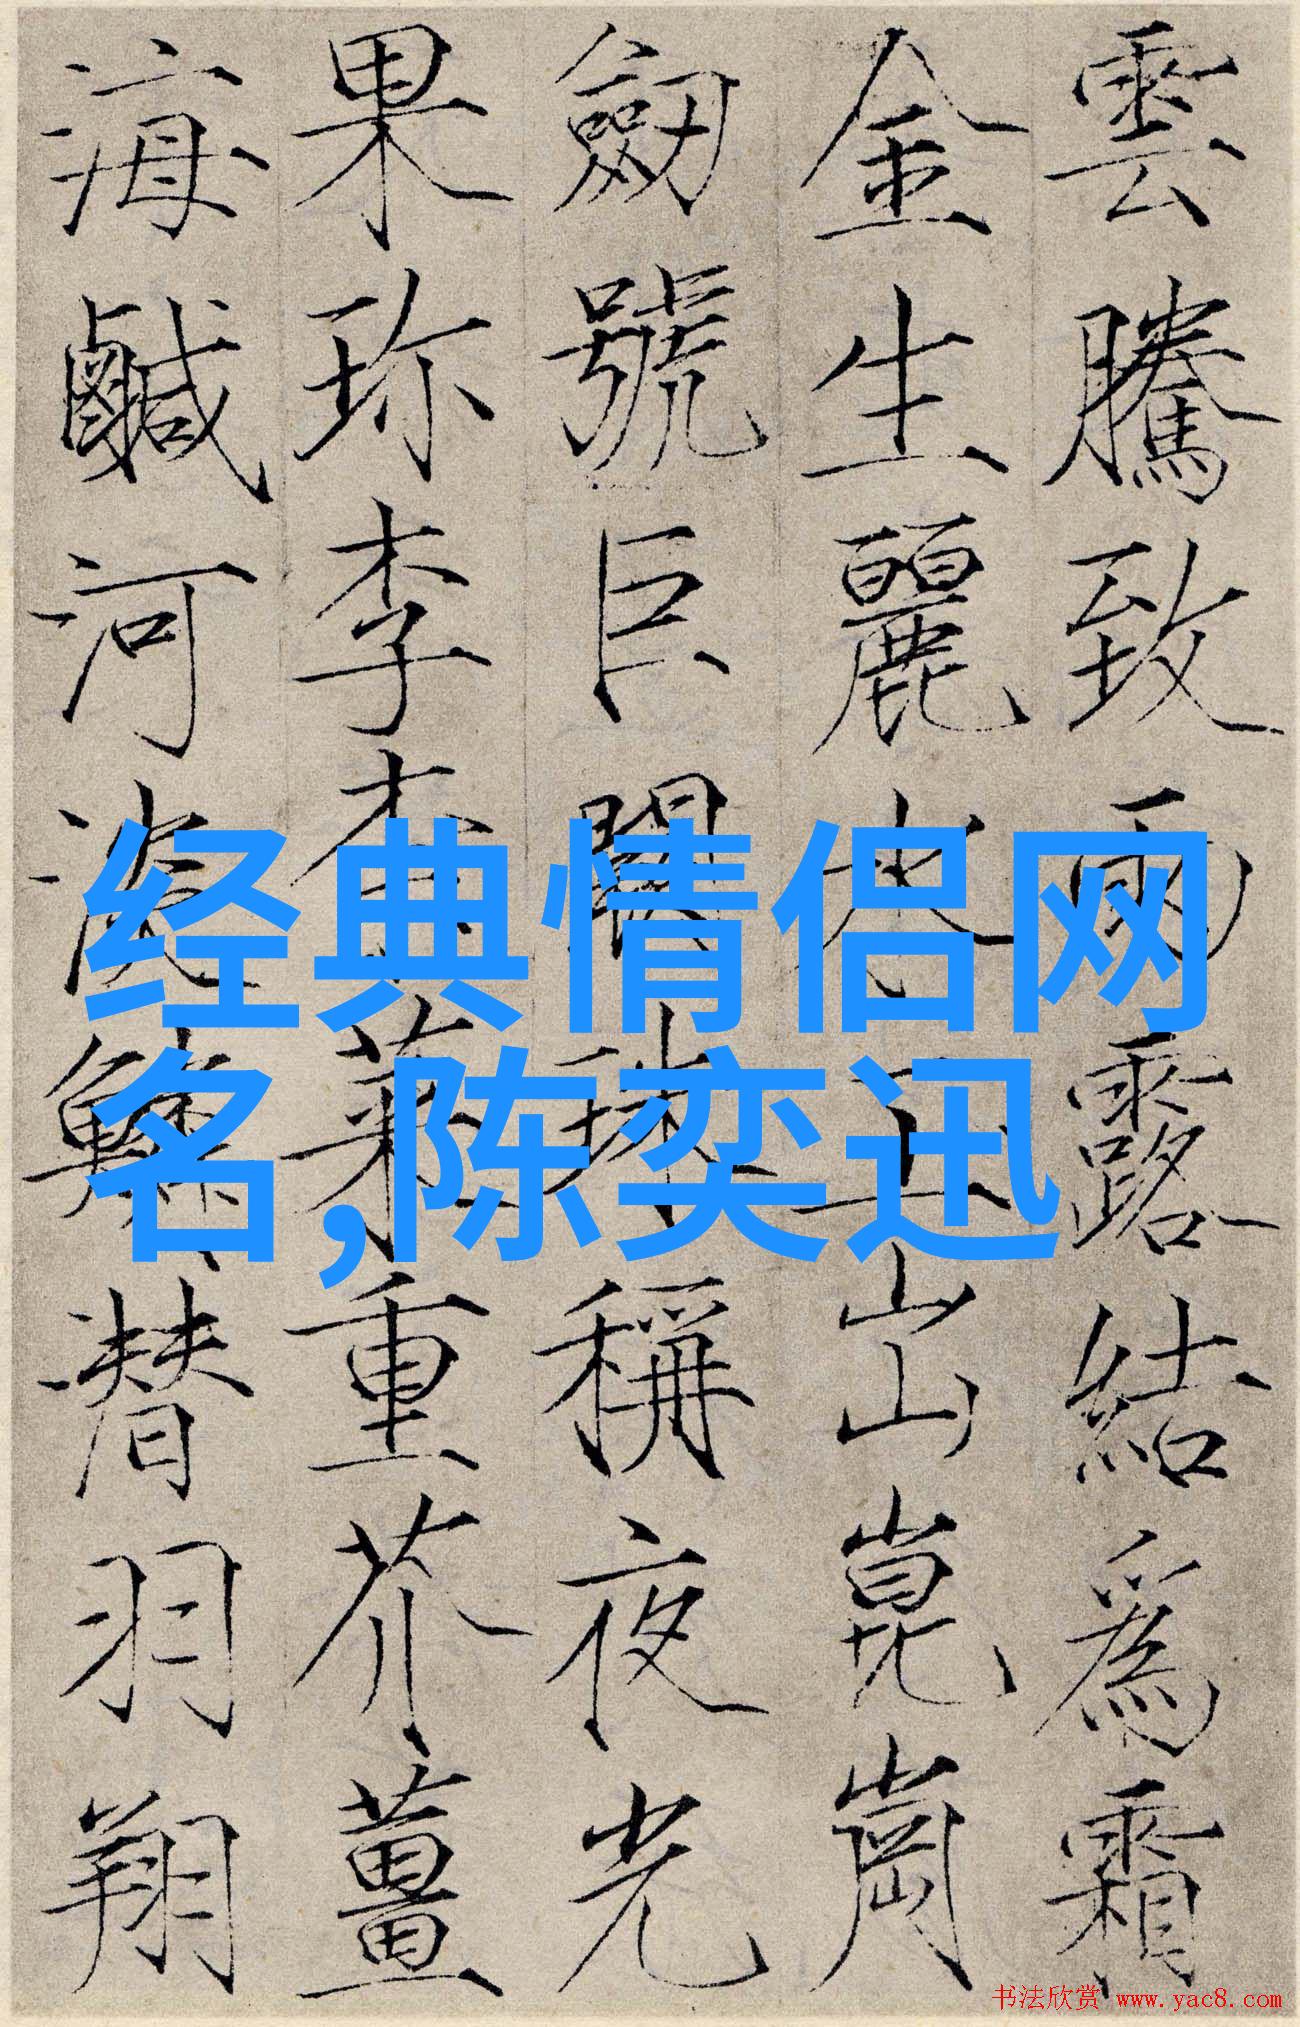 雲騰致雨露結為霜
金生麗水玉出崑崗
劒號巨闕珠稱夜光
果珎李柰菜重芥薑
海鹹河淡鱗潛羽翔
经典情侣网
名,陈奕迅
书法欣赏 www.yac8.com